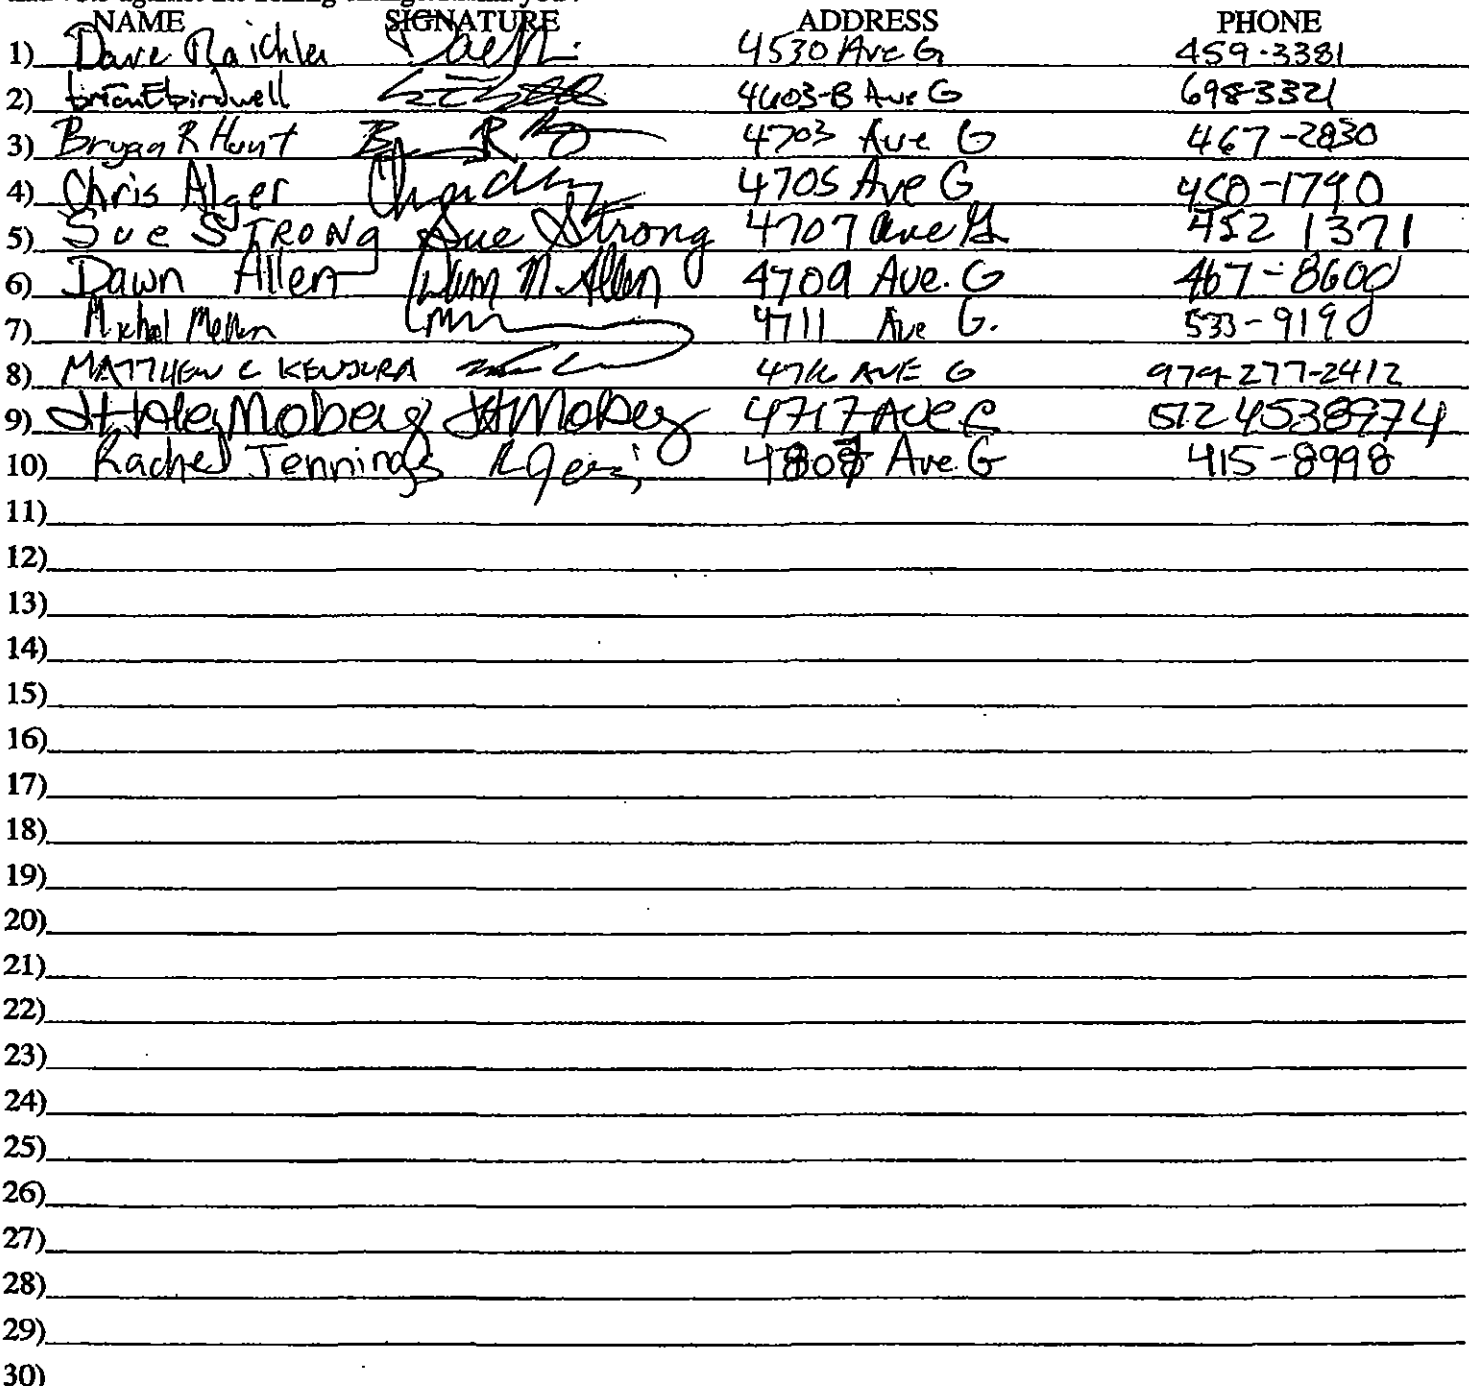 NAME SIGNATURE ADDRESS PHONE
1) Dave Raichler 4530 Ave G 459-3381
2) brian E birdwell 4603-B Ave G 698-3321
3) Bryan R Hunt 4703 Ave G 467-2830
4) Chris Alger 4705 Ave G 450-1790
5) Sue STRONg Sue Strong 4707 Ave G 452 1371
6) Dawn Allen Dawn M. Allen 4709 Ave. G 467-8600
7) Michal 4711 Ave G. 533-9190
8) MATTHEW C 4716 AVE G 979-277-2412
9) Moberg 4717 Ave 512 4538974
10) Rachel Jennings Ave. G 415-8998
11)
12)
13)
14)
15)
16)
17)
18)
19)
20)
21)
22)
23)
24)
25)
26)
27)
28)
29)
30)